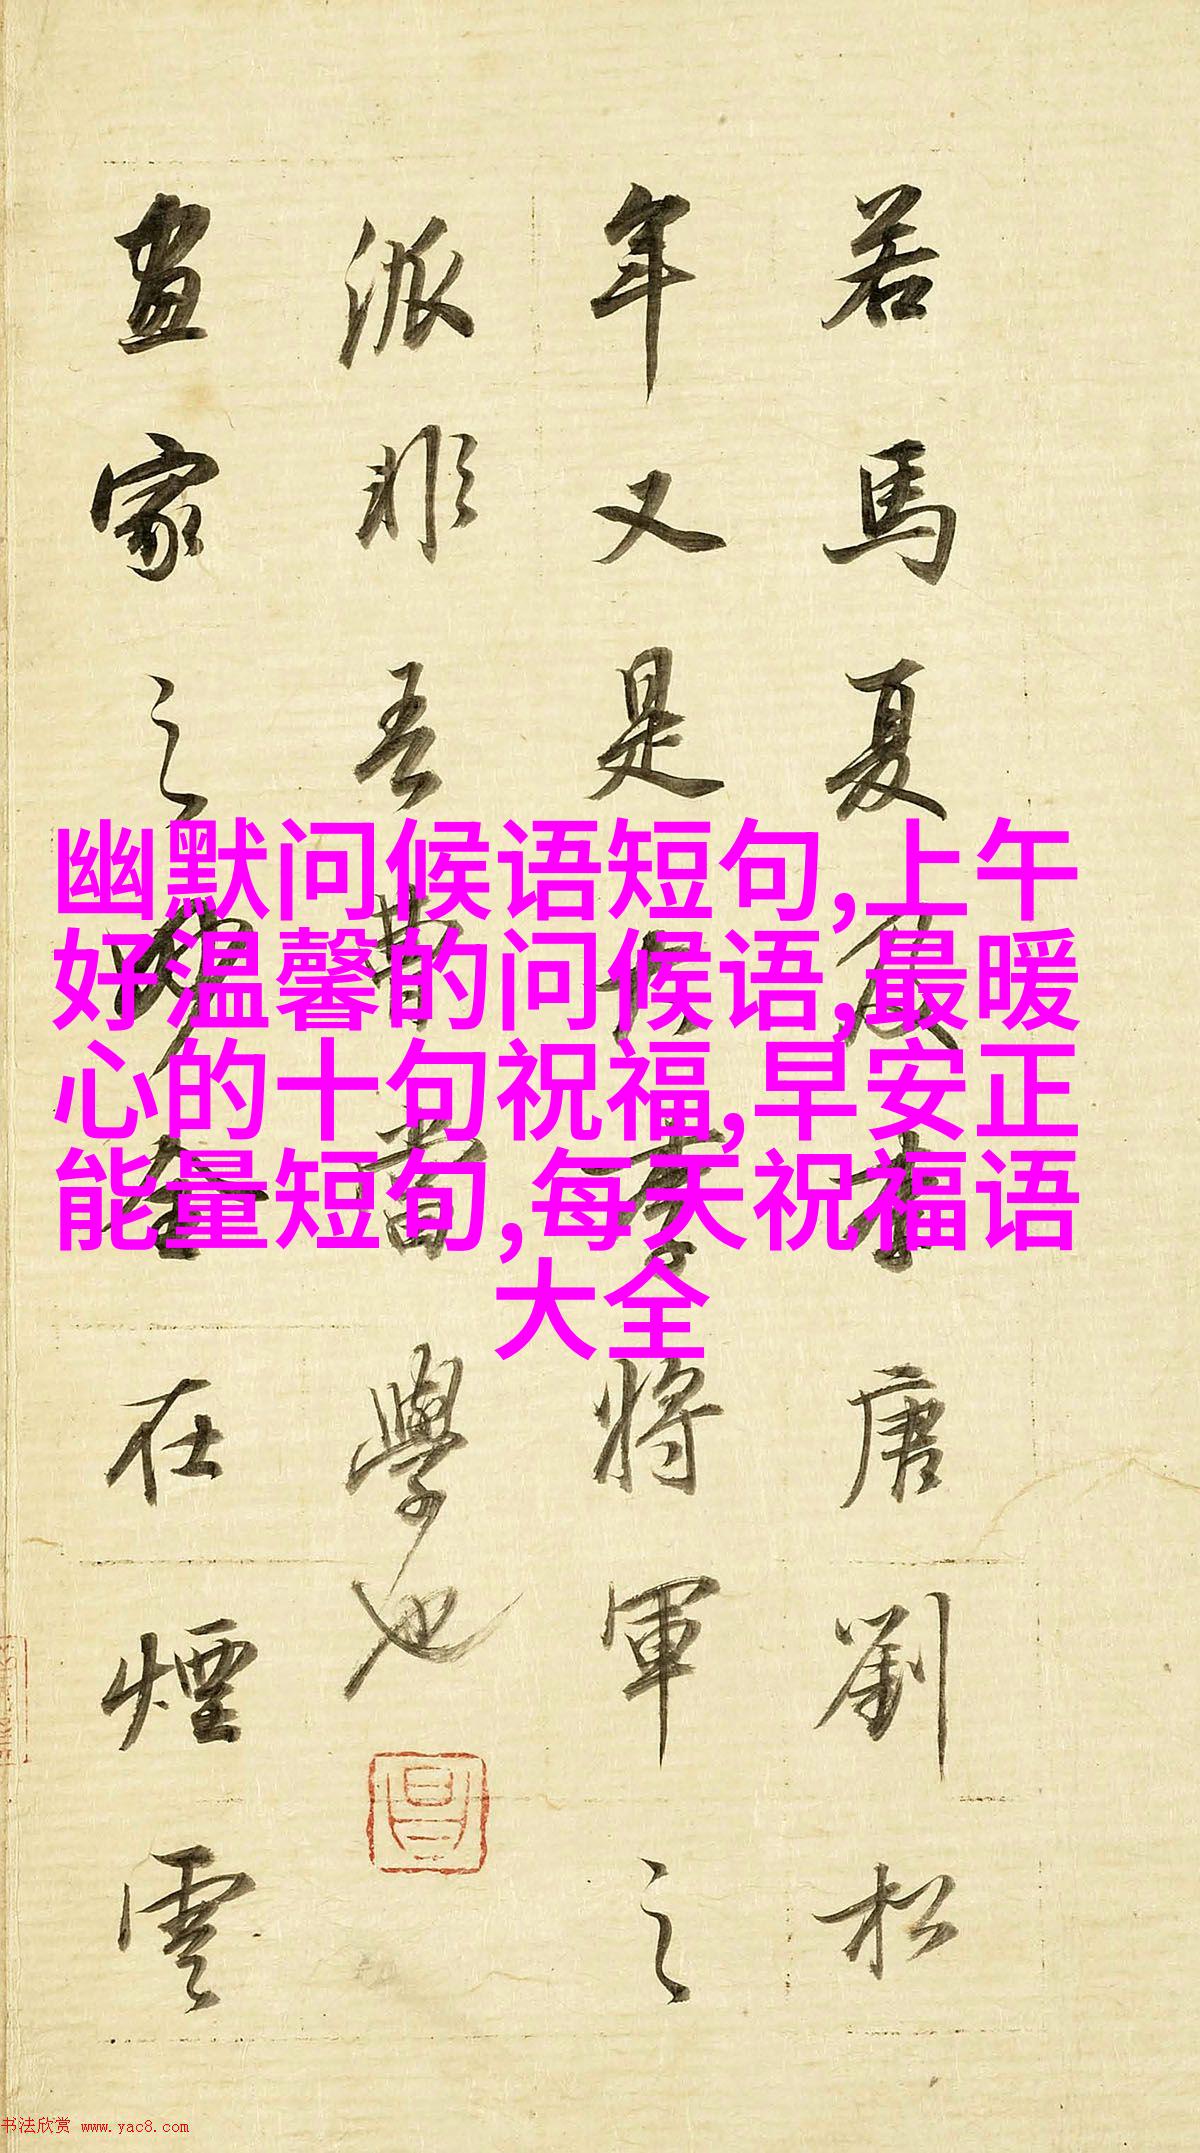 若馬夏及李唐劉松
年又是李將軍之
派非吾曹當學也
畫家之妙全在煙雲
幽默问候语短句,上午
好温馨的问候语,最暖
心的十句祝福,早安正
能量短句,每天祝福语
大全
书法欣赏 www.yac8.com